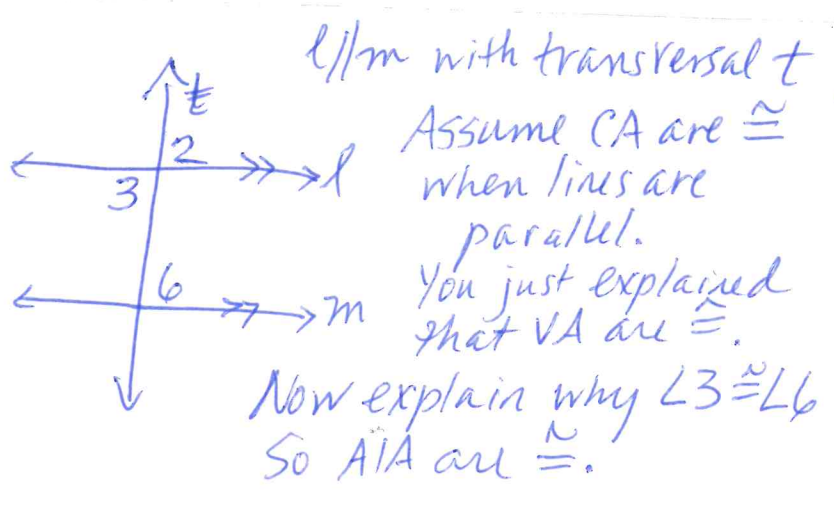 l//m with transversal t
t
Assume CA are ≅
2
l
when lines are
3
parallel.
6
You just explained
m
that VA are ≅.
Now explain why ∠3≅∠6
So AIA are ≅.